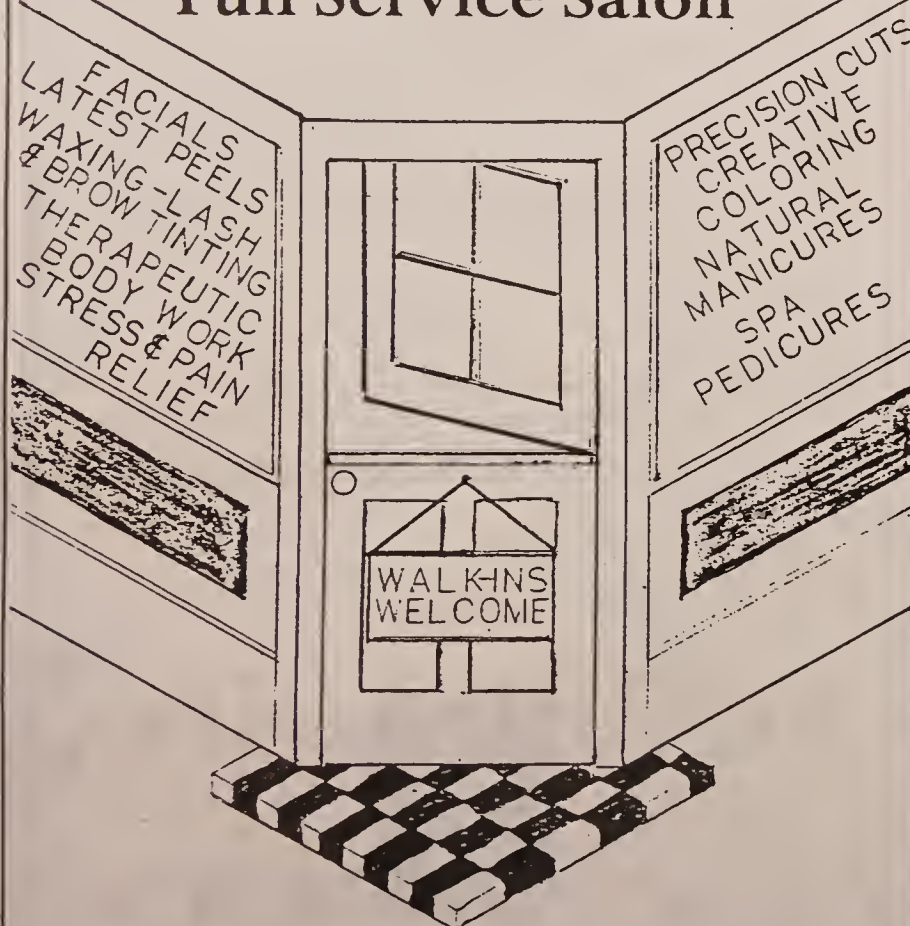 Full Service Salon
FACIALS
LATEST PEELS
WAXING-LASH
& BROW TINTING
THERAPEUTIC
BODY WORK
STRESS & PAIN
RELIEF
PRECISION CUTS
CREATIVE
COLORING
NATURAL
MANICURES
SPA
PEDICURES
WALK-INS
WELCOME